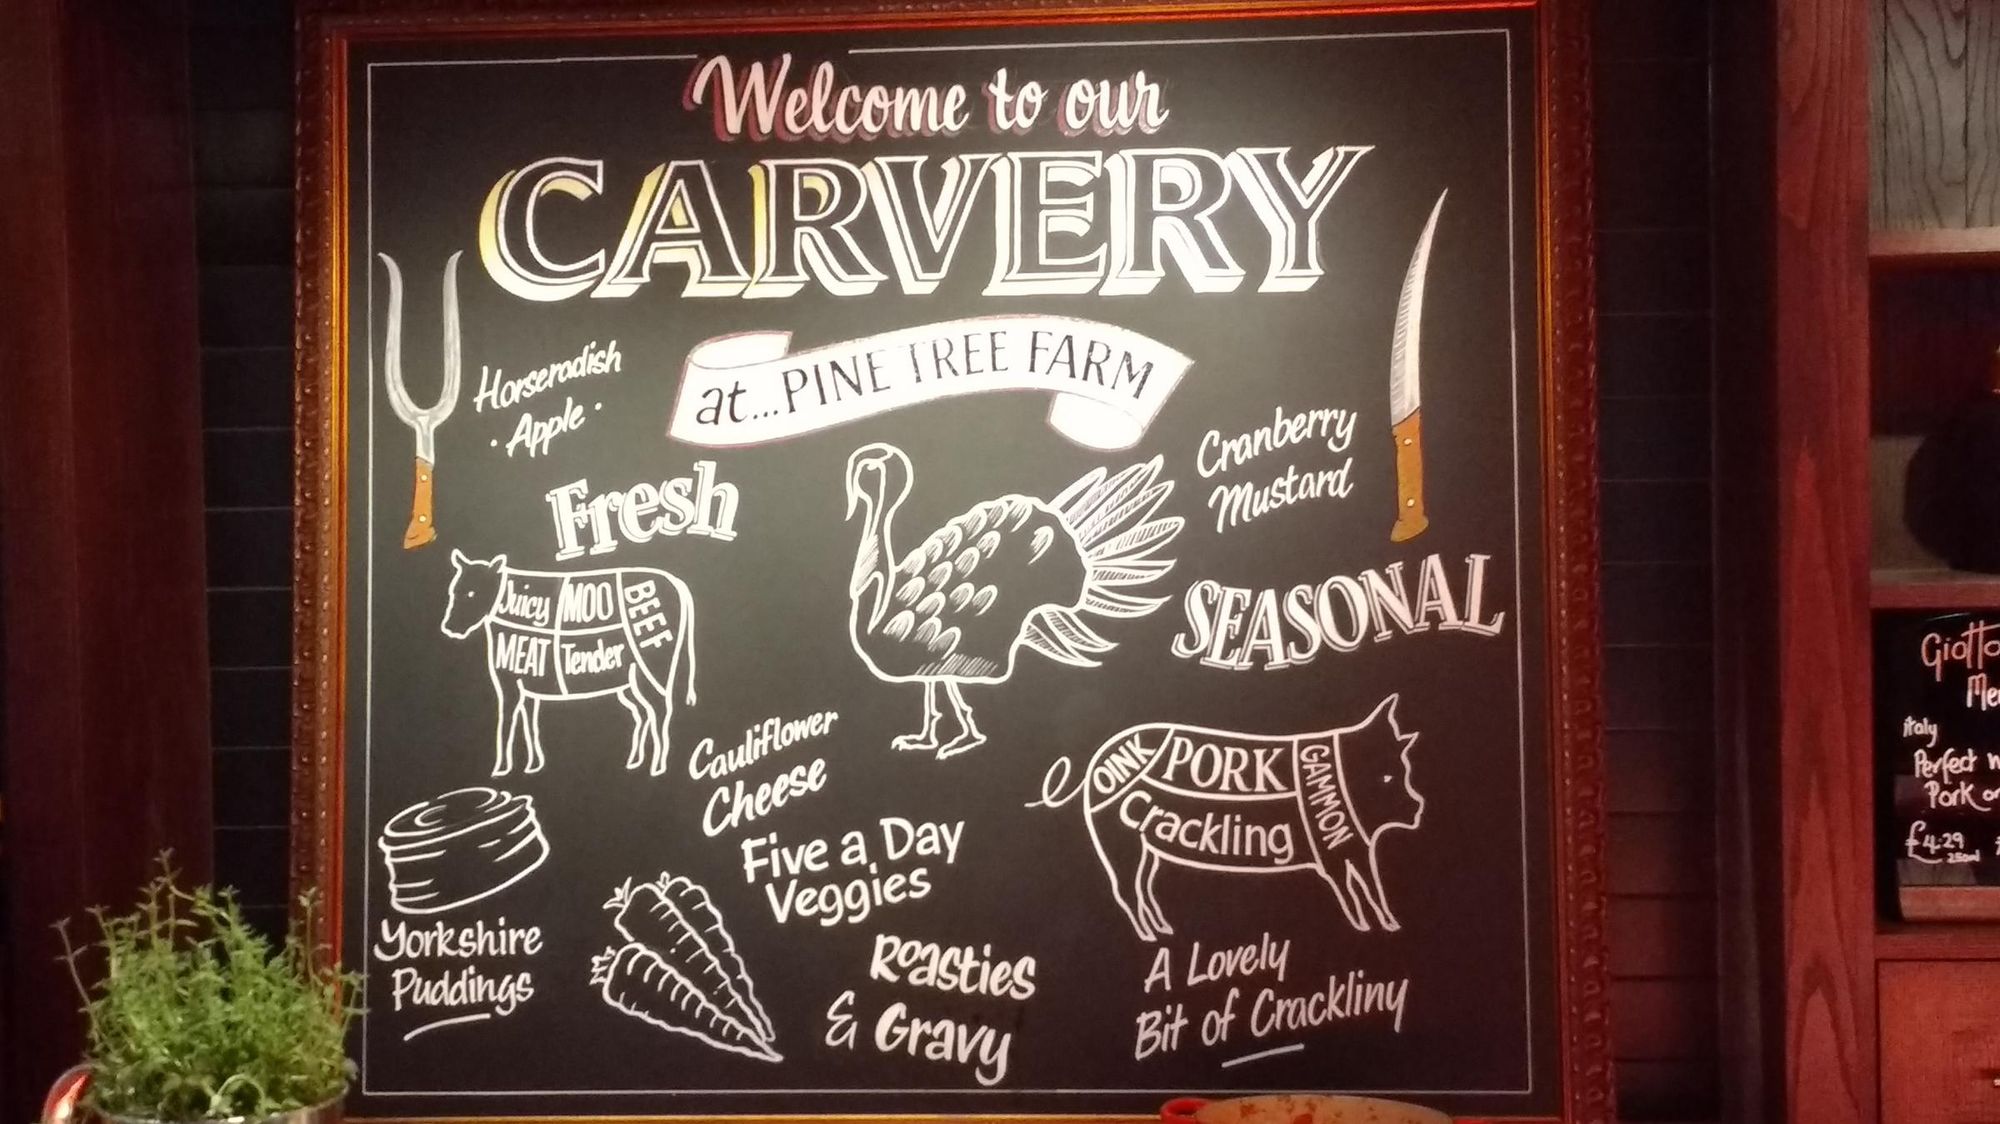 Welcome to our
CARVERY
at...PINE TREE FARM
Horseradish
· Apple ·
Cranberry
Mustard
Fresh
SEASONAL
Juicy MOO BEEF
MEAT Tender
Cauliflower
Cheese
OINK PORK GAMMON
Crackling
Five a Day
Veggies
Yorkshire
Puddings
Roasties
& Gravy
A Lovely
Bit of Crackliny
Giotto
italy
Perfect
Pork
£4.29
250ml